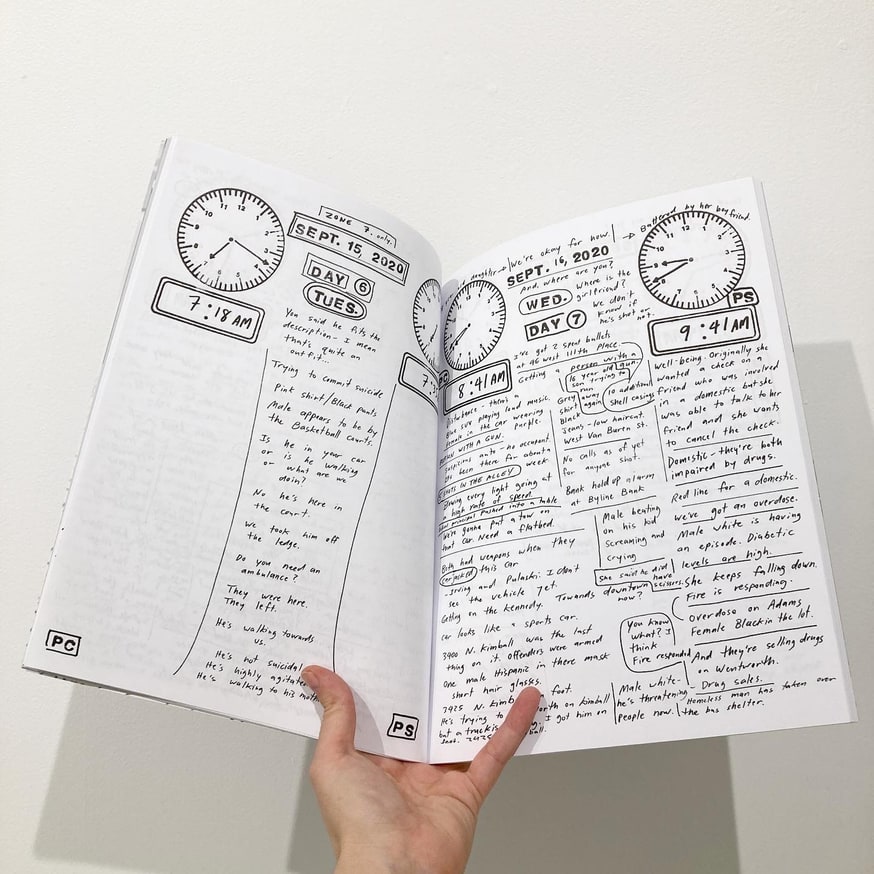 ZONE 7. only.
SEPT. 15, 2020
DAY 6
TUES.
7:18 AM
You said he fits the
description - I mean
that's quite an
outfit...
Trying to commit suicide
Pink shirt/Black pants
Male appears to be by
the Basketball courts.
Is he in your car
or is he walking
or what are we
doin?
No he's here in
the court.
We took him off
the ledge.
Do you need an
ambulance?
They were here.
They left.
He's walking towards
us.
He's not suicidal
He's highly agitated
He's walking to his
PC
PS
daughter
We're okay for now
Battered by her boyfriend.
SEPT. 16, 2020
And, where are you?
WED.
DAY 7
Where is the
girlfriend?
We don't
know if
he's shot or
not.
8:41 AM
PS
9:41 AM
I've got 2 spent bullets
at 46 West 111th Place.
Getting a person with a
gun.
16 year old
son trying to
run
Grey
shirt again.
Black
Jeans - low haircut.
West Van Buren St.
10 additional
shell casings
No calls as of yet
for anyone shot.
Bank hold up alarm
at Byline Bank
Disturbance - there's a
Blue SUV playing loud music.
Female in the car wearing
purple.
PERSON WITH A GUN.
Suspicious auto - no occupant
been there for about a
week
SHOTS IN THE ALLEY
Blowing every light going at
high rate of speed.
principal pushed into a table
We're gonna put a tow on
that car. Need a flatbed.
Both had weapons when they
carjacked this car
Irving and Pulaski. I don't
see the vehicle yet.
Getting on the Kennedy.
Towards downtown
now?
Car looks like a sports car.
3900 N. Kimball was the last
thing on it. Offenders were armed
One male Hispanic in there mask
short hair glasses.
foot.
3925 N. Kimball
North on Kimball
He's trying to
I got him on
but a truck is
Male beating
on his kid
screaming and
crying
She said he did
have scissors.
You know
what? I
think
Fire responded
Male white -
he's threatening
people now.
Well-being. Originally she
wanted a check on a
friend who was involved
in a domestic but she
was able to talk to her
friend and she wants
to cancel the check.
Domestic - they're both
impaired by drugs.
Red line for a domestic.
We've got an overdose.
Male white is having
an episode. Diabetic
levels are high.
She keeps falling down.
Fire is responding.
Overdose on Adams
Female Black in the lot.
And they're selling drugs
on Wentworth.
Drug sales.
Homeless man has taken over
the bus shelter.